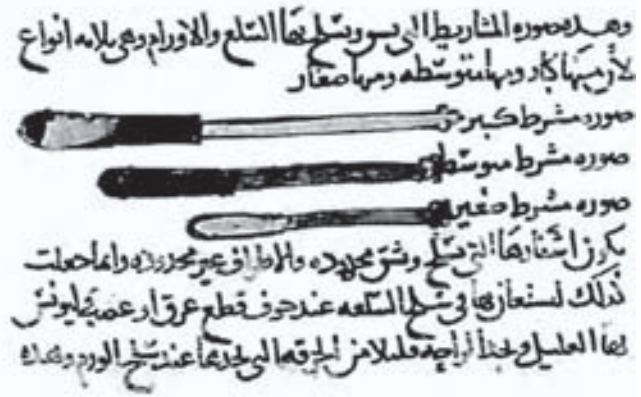 وهذه صوره المشاريط التى يشق ويسلخ بها السلع والاورام وهى ثلاثه انواع
لأن منها كبار ومنها متوسطه ومنها صغار
صوره مشرط كبير
صوره مشرط متوسط
صوره مشرط صغير
يكون اشفارها التى تسلخ وتشق محدوده والاطراف غير محدوده وانما جعلت
كذلك لتستعان بها فى سلخ السلعه عند خوف قطع عرق او عصبه
بها العليل ويجد الراحة قليلا من الحرقه التى يجدها عند سلخ الورم وهذه